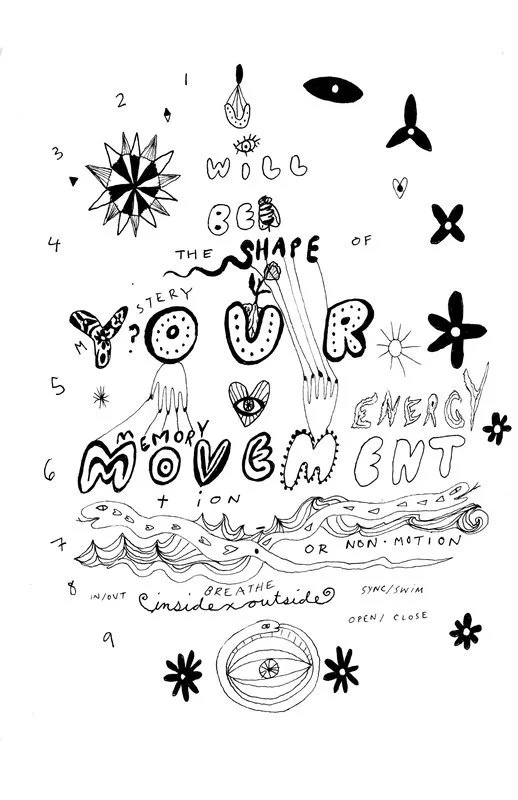 1
2
U
3
WILL
BE
4
THE SHAPE OF
MYSTERY
YOUR
?
5
ENERGY
MEMORY
6
MOVEMENT
+ ION
7
OR NON·MOTION
8
IN/OUT BREATHE SYNC/SWIM
insidexoutside
OPEN/ CLOSE
9